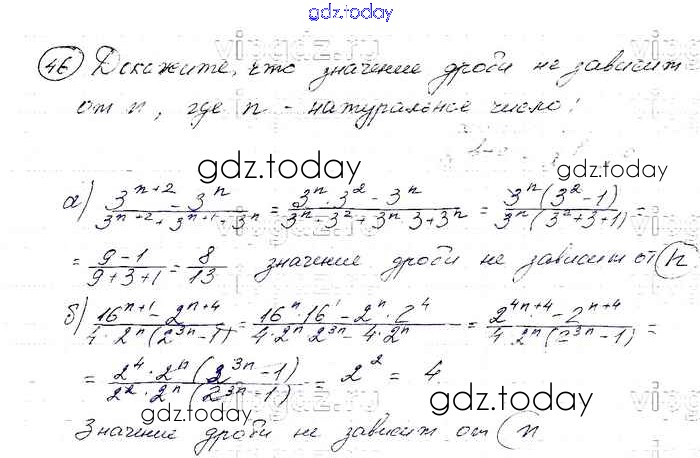 gdz.today
46 Докажите, что значение дроби не зависит
от n, где n - натуральное число:
gdz.today
а) (3^(n+2) - 3^n)/(3^(n+2) + 3^(n+1) + 3^n) = (3^n · 3^2 - 3^n)/(3^n · 3^2 + 3^n · 3 + 3^n) = (3^n (3^2 - 1))/(3^n (3^2 + 3 + 1)) =
= (9 - 1)/(9 + 3 + 1) = 8/13 значение дроби не зависит от n
б) (16^(n+1) - 2^(n+4))/(4 · 2^n (2^(3n) - 1)) = (16^n · 16^1 - 2^n · 2^4)/(4 · 2^n 2^(3n) - 4 · 2^n) = (2^(4n+4) - 2^(n+4))/(4 · 2^n (2^(3n) - 1)) =
= (2^4 · 2^n (2^(3n) - 1))/(2^2 · 2^n (2^(3n) - 1)) = 2^2 = 4
gdz.today
gdz.today
Значение дроби не зависит от n